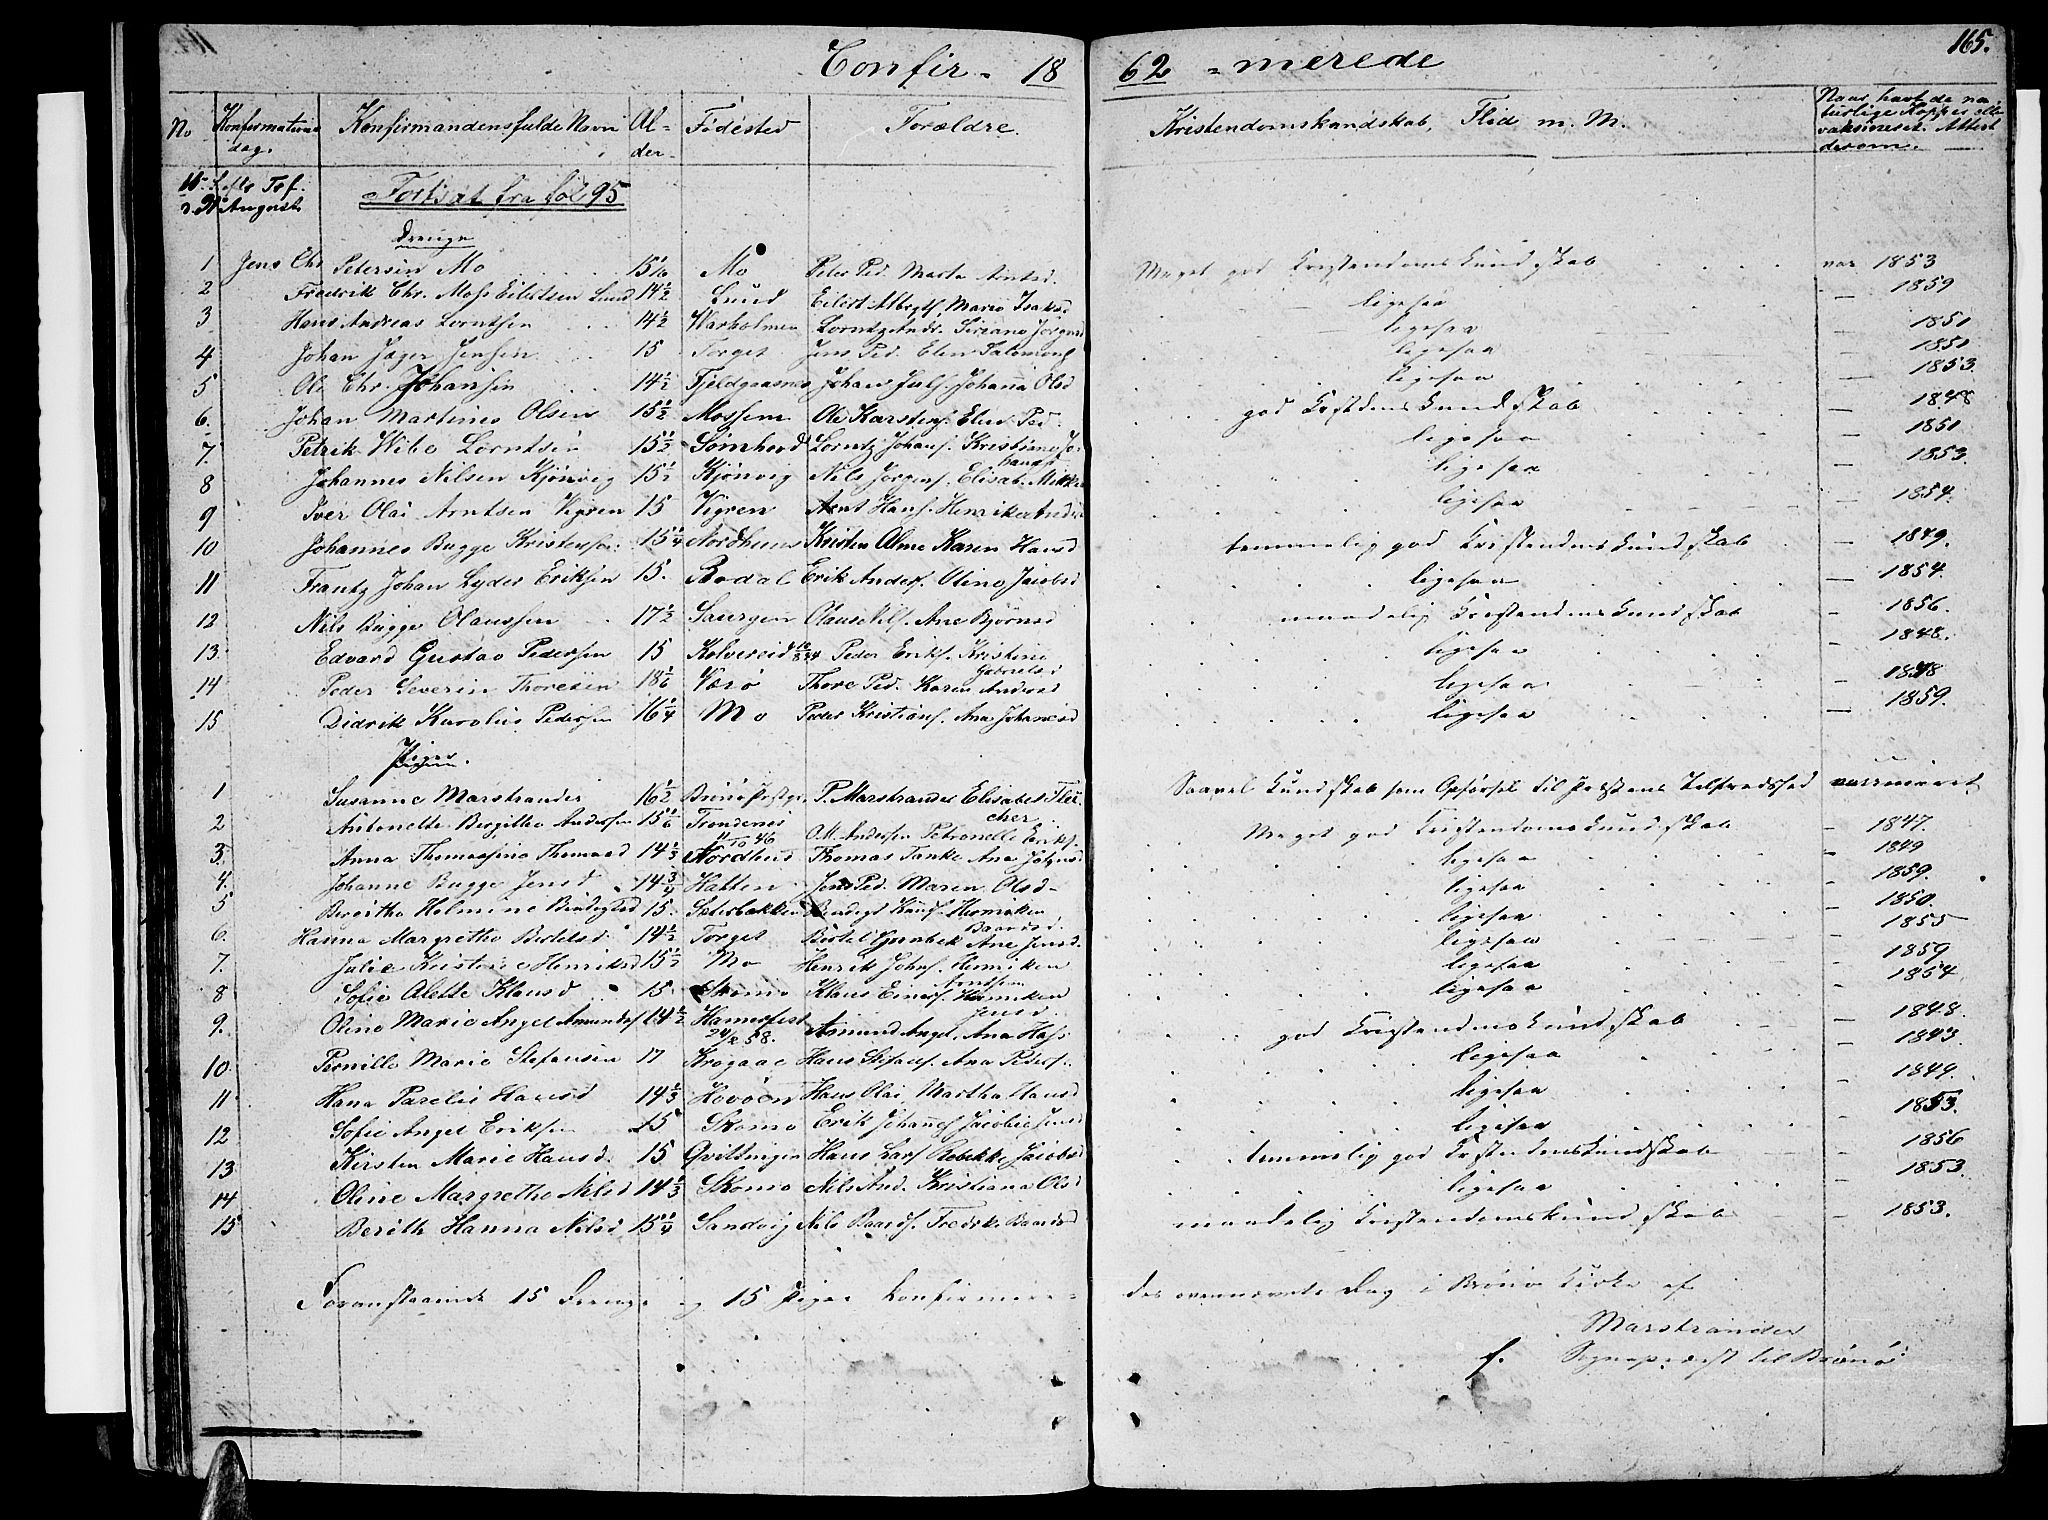 Confir- 18 62 -merede 165.
No Konfirmations dag. Konfirmandens fulde Navn Al- der- Fødested Forældre. Kristendomskundskab, Flid m. M. Naar havt de na- turlige Kopper eller vaksineret. Attest derom.
August. Fortsat fra fol 95
Drenge
1 Jens Chr Petersen Mo 15 1/6 Mo Peter Ped. Marta Arntsd. Meget god Kristendomskundskab vac 1853
2 Fredrik Chr. Moss Eilertsen Lund 14 1/2 Lund Eilert Albrgts, Marie Isaksd ligesaa 1859
3 Hans Andreas Lorntsen 14 1/2 Warholmen Lorntz Ands. ligesaa 1851
4 Johan Jæger Jensen 15 Torget Jens Ped. Elen Salomons ligesaa 1851
5 Ole Chr. Johansen 14 1/2 Fjeldgaasnes Johan Juls. Johanna Olsd ligesaa 1853.
6. Johan Martines Olsen 15 1/2 Mossem Ole Karstens. Elen Ped. god Krstdmskundskab 1848
7. Petrik Wibe Lorntsen 15 1/2 Sømhovd Lorntz Johans. Kristiane Jo- hansd ligesaa 1851
8 Johannes Nilsen Kjønvig 15 1/2 Kjønvig Nils Jørgens. Elisab. ligesaa 1853.
9 Iver Olai Arntsen Vigren 15 Vigren Arnt Hans. Henrikke ligesaa 1854.
10 Johannes Bugge Kristensen 15 1/4 Nordhuus Kristen Olme Karen Hansd temmelig god Kristendmskundskab 1849.
11 Frantz Johan Lyder Eriksen 15. Rodal Erik Anders. Oline Jacobsd ligesaa 1854.
12 Nils Bugge Olaussen 17 1/2 Saurgen Olaus Nils. Ane Bjørnsd maadelig Kristendmskundskab 1856.
13. Edvard Gustav Pedersen 15 Kolvereid Peder Eriks. Kristine Gabrielsd ligesaa 1848.
14 Peder Severin Thoresen 18 1/6 Værø Thore Ped. Karen Andersd ligesaa 1848
15 Didrik Karolius Pedersen 16 1/4 Mo Peder Kristians. Ane Johannesd ligesaa 1859.
Piger
1 Susanne Marstrander 16 1/2 Brønø Prstgr. P. Marstrander Elisabet Flet- cher Saavel Kundskab som Opførsel til Præstens Tilfredshed
2 Antonette Birgitte Andersen 15 1/6 Trondenes 46 O. M. Andersen Petronelle Eriks. Meget god Kristendomskundskab 1847.
3. Anna Thomassine Thomasd 14 1/3 Nordhus Thomas Tanke Ane ligesaa 1849
4. Johanne Bugge Jensd 14 3/4 Hatten Jens Ped. Maren Olsd- ligesaa 1859.
5 Beritha Helmine Bendigtsd 15. Sæterbakken Bendigt Knuds. Henrikke Baardsd. ligesaa 1850.
6. Hanna Margrethe Bertelsd 14 1/2 Torget Bertel Ane Jensd. ligesaa 1855
7. Julie Kristine Henriksd 15 1/2 Mo Henrik Johns. Henrikke Arntsen ligesaa 1859
8 Sofie Alette Klausd 15. Skomo Klaus Einers. Henrikke Jensd. ligesaa 1854
9. Oline Marie Angel Amunds 14 1/2 Hammerfest 24/2 58. Amund Angel, Ane god Kristendmskundskab 1848.
10 Pernille Marie Stefansen 17 Krogaae Hans Stefans. Ane Peders. ligesaa 1843.
11 Hana Parelie Hansd 14 1/3 Hovøen Hans Olai Martha Hansd ligesaa 1849.
12 Sofie Angel Eriksen 15 Skomo Erik Johans Jacobie Jensd ligesaa 1853.
13 Kirsten Marie Hansd. 15 Qvittingen Hans Lars Rebekke Jacobsd temmelig god Krstendmskundskab 1856
14 Oline Margrethe Nilsd 14 1/3 Skomo Nils And. Kristiana Olsd ligesaa 1853.
15 Berith Hanna Nilsd 15 1/4 Sandvig Nils Baards. Fredrk. Baardsd maadelig Kristendomskundskab 1853.
Foranstaaende 15 Drenge og 15 Piger konfirmere- des ovennævnte Dag i Brønø Kirke af
Marstrander
f. Sogneprest til Brønø